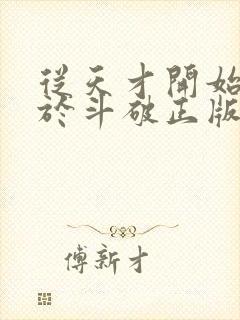 從天才開始
於斗破正版
傅新才